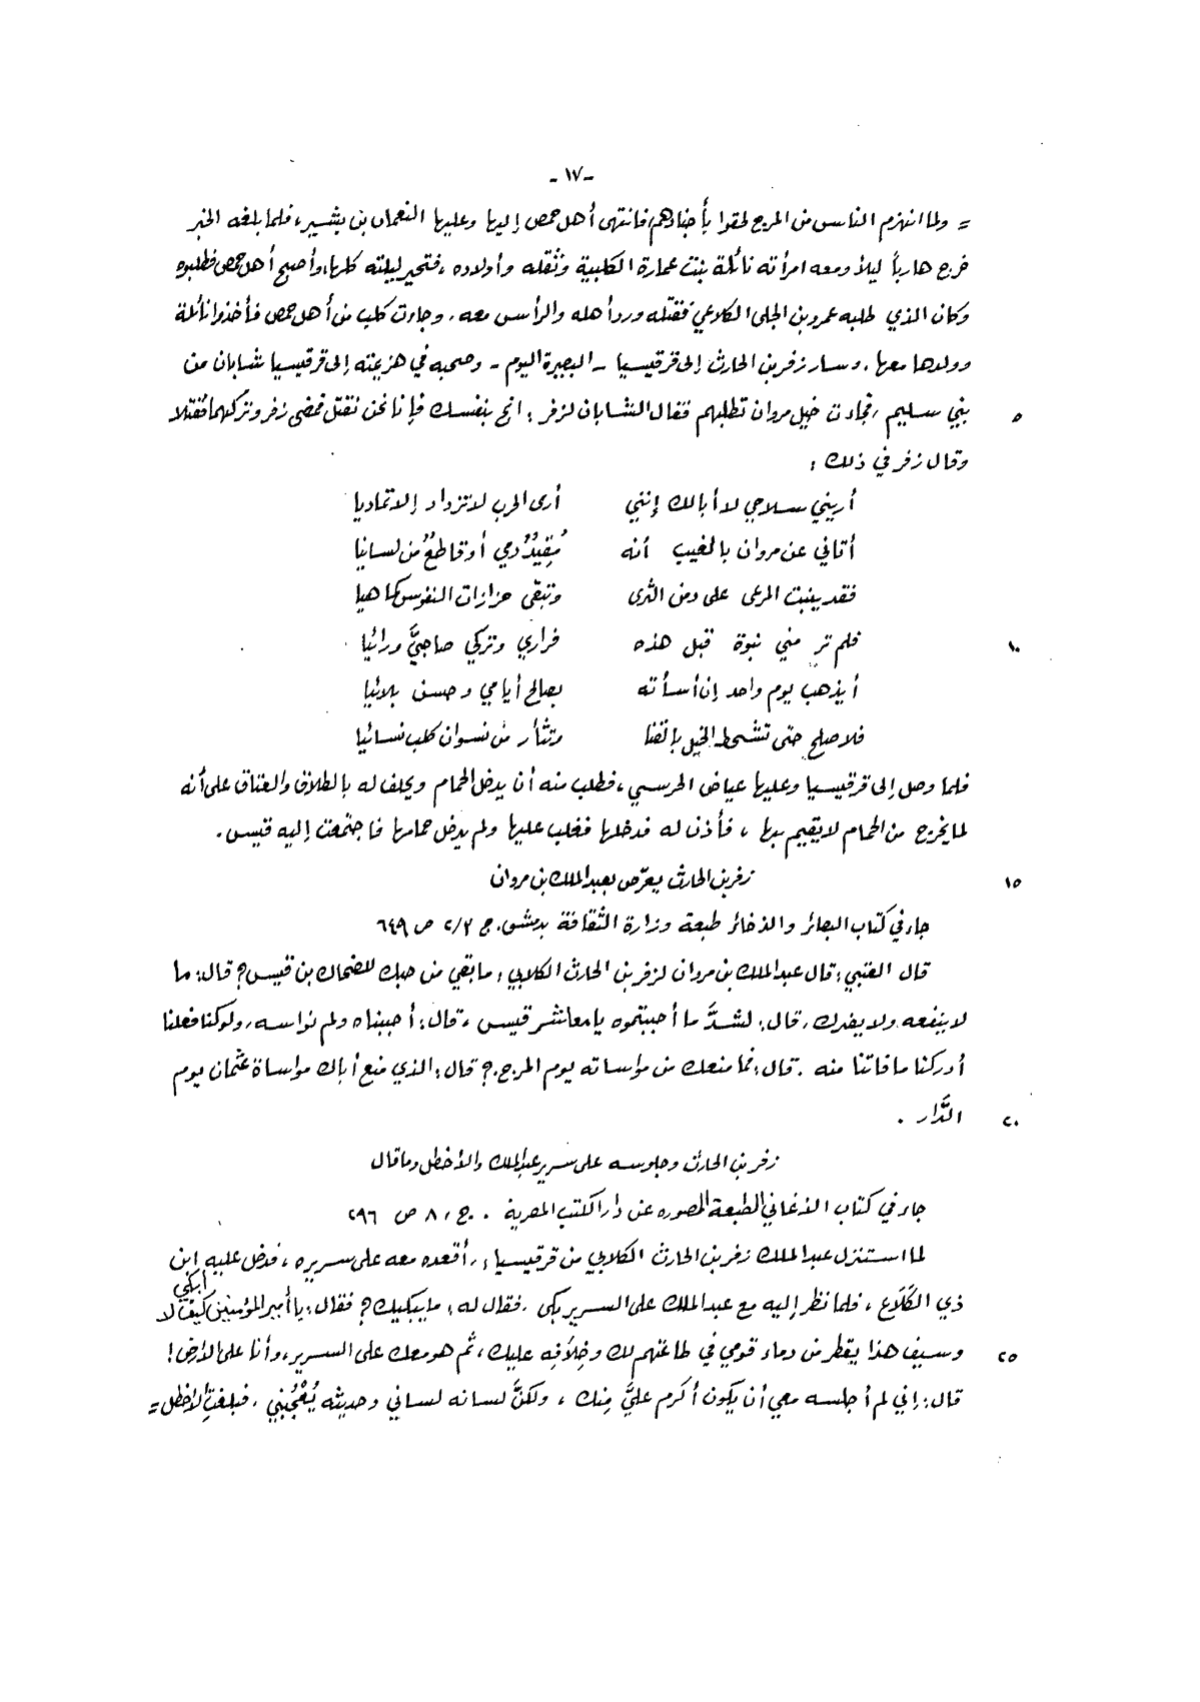 -١٧-
= ولما انهزم الناس من المرج لحقوا بأجنادهم فانتهى أهل حمص إليها وعليها النعمان بن بشير، فلما بلغه الخبر
خرج هارباً ليلاً ومعه امرأته نائلة بنت عمارة الكلبية وثقله وأولاده، فتحير ليلته كلها، وأصبح أهل حمص فطلبوه
وكان الذي طلبه عمرو بن الجلي الكلاعي فقتله ورد أهله والرأس معه، وجاءت كلب من أهل حمص فأخذوا نائلة
وولدها معها، وسار زفر بن الحارث إلى قرقيسيا - البصيرة اليوم - وصحبه في هزيمته إلى قرقيسيا شابان من
٥ بني سليم، فجاءت خيل مروان تطلبهم فقال الشابان لزفر: انج بنفسك فإنا نحن نقتل فمضى زفر وتركهما فقتلا
وقال زفر في ذلك:
أريني سلاحي لا أبالك إنني أرى الحرب لا تزداد إلا تماديا
أتاني عن مروان بالغيب أنه مُقِيدٌ دمي أو قاطعٌ من لسانيا
فقد ينبت المرعى على دمن الثرى وتبقى حزازات النفوس كما هيا
١٠ فلم تر مني نبوة قبل هذه فراري وتركي صاحبيَّ ورائيا
أيذهب يوم واحد إن أسأته بصالح أيامي وحسن بلائيا
فلا صلح حتى تشحط الخيل بالقنا وتثأر من نسوان كلب نسائيا
فلما وصل إلى قرقيسيا وعليها عياض الحرسي، فطلب منه أن يدخل الحمام ويحلف له بالطلاق والعتاق على أنه
لما يخرج من الحمام لا يقيم بها، فأذن له فدخلها فغلب عليها ولم يدخل حمامها فاجتمعت إليه قيس.
١٥ زفر بن الحارث يعرّض بعبد الملك بن مروان
جاء في كتاب البصائر والذخائر طبعة وزارة الثقافة بدمشق. ج ٢/٢ ص ٦٤٩
قال العتبي: قال عبد الملك بن مروان لزفر بن الحارث الكلابي: ما بقي من حبك للضحاك بن قيس؟ قال: ما
لا ينفعه ولا يضرك، قال: لشدَّ ما أحببتموه يا معاشر قيس، قال: أحببناه ولم نواسه، ولو كنا فعلنا
أدركنا ما فاتنا منه. قال: فما منعك من مؤاساته يوم المرج.؟ قال: الذي منع أباك مواساة عثمان يوم
٢٠ الدَّار.
زفر بن الحارث وجلوسه على سرير عبد الملك والأخطل وما قال
جاء في كتاب الأغاني الطبعة المصوره عن دار الكتب المصرية. ج، ٨ ص ٢٩٦
لما استنزل عبد الملك زفر بن الحارث الكلابي من قرقيسياء، أقعده معه على سريره، فدخل عليه ابن
ذي الكَلَاع، فلما نظر إليه مع عبد الملك على السرير بكى. فقال له: ما يبكيك؟ فقال: يا أمير المؤمنين كيف لا أبكي
٢٥ وسيف هذا يقطر من دماء قومي في طاعتهم لك وخِلَافِه عليك، ثم هو معك على السرير، وأنا على الأرض!
قال: إني لم أجلسه معي أن يكون أكرم عليَّ مِنك، ولكنَّ لسانه لساني وحديثه يُعْجِبُني، فبلغتِ الأخطل =